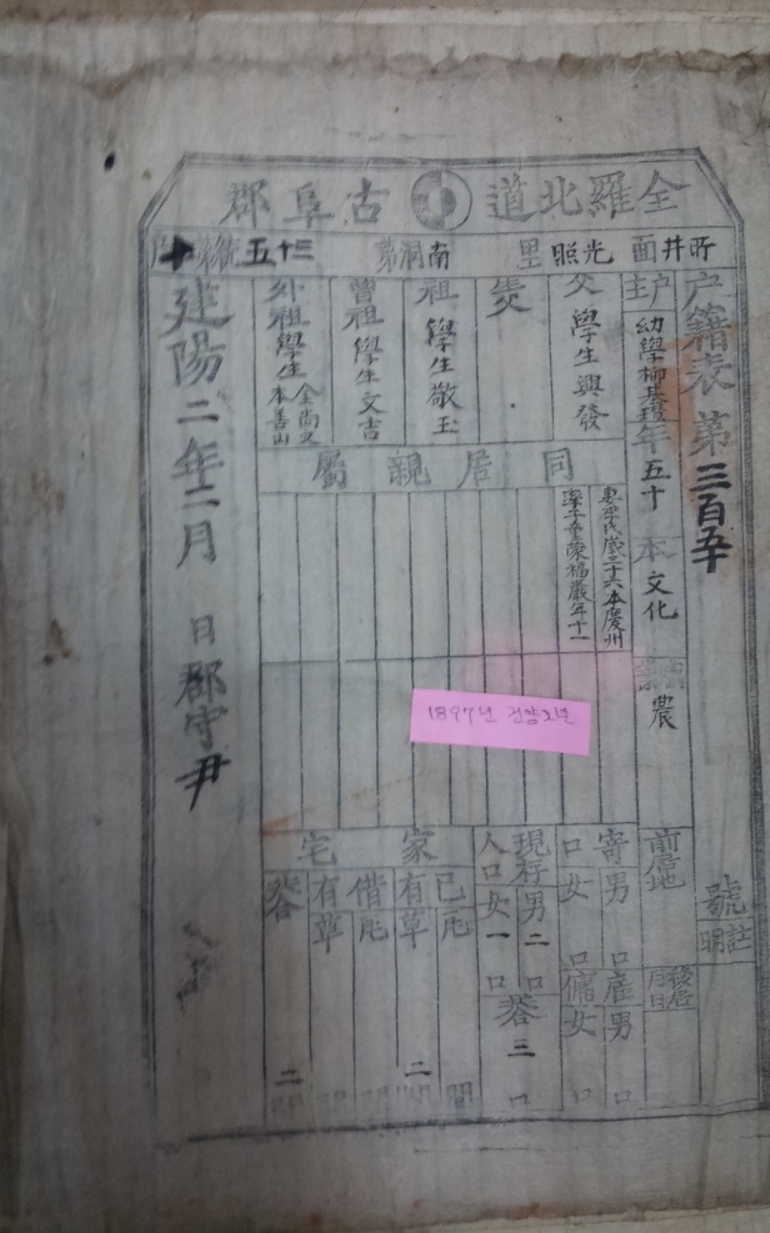 全羅北道 古阜郡
所井面 光照里 南洞第 三十五統第十戶
戶籍表 第三百五十 號
註明
戶主 幼學柳基 年五十 本 文化
農
前居地
移居月日
父 學生興發
祖 學生敬玉
曾祖 學生文吉
外祖 學生金尚文 本善山
同居親屬
妻李氏歲三十六本慶州
率子童蒙福巖年十一
寄口 男 口 女 口
雇傭 男 口 女 口
現存人口 男 二 口 女 一 口 共 三 口
家宅
己有 瓦 間 草 二 間
借有 瓦 間 草 間
共 二 間
建陽二年二月 日郡守尹
1897년 건양2년